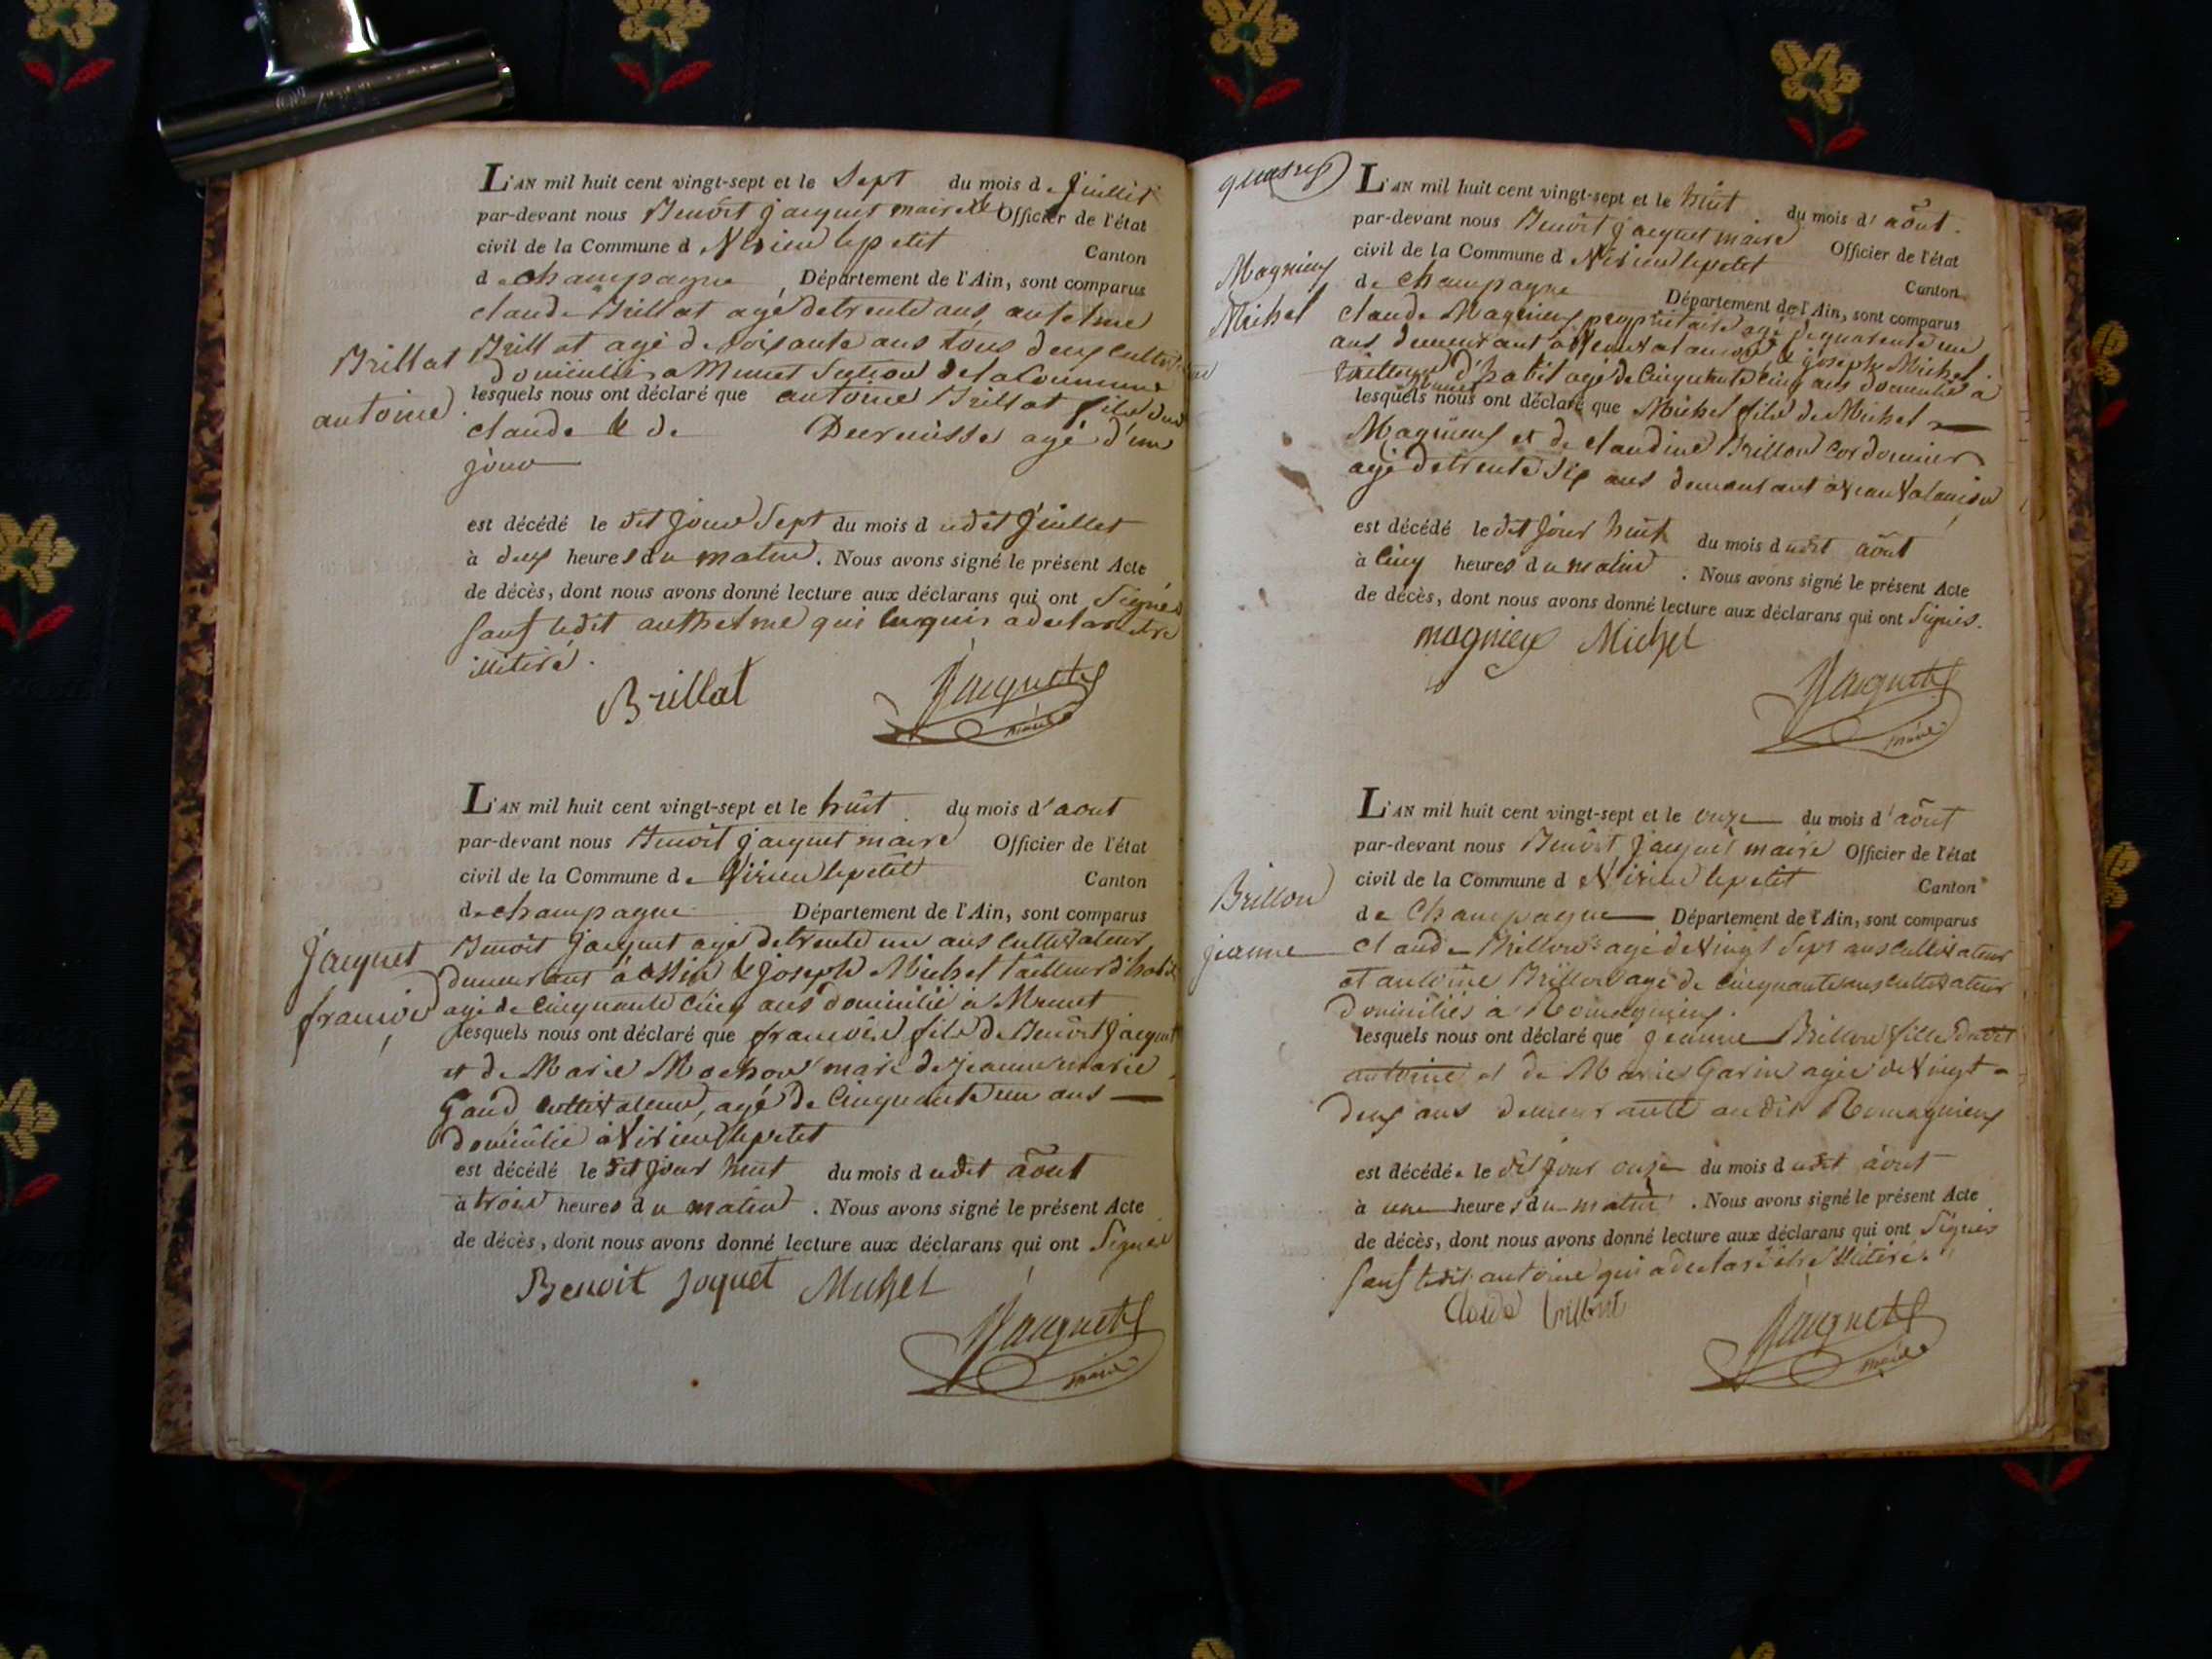 L'AN mil huit cent vingt-sept et le Sept du mois de Juillet
par-devant nous Benoit Jacquet maire & Officier de l'état
civil de la Commune d Virieu le petit Canton
de Champagne Département de l'Ain, sont comparus
claude Brillat agé de trente ans, antelme
Brillat agé de soixante ans tous deux
Brillat
domicilié a Munet Section de la Commune
lesquels nous ont déclaré que antoine Brillat fils dud
antoine
claude & de agé d'un
jour
est décédé le dit jour Sept du mois dudit Juillet
à deux heures du matin. Nous avons signé le présent Acte
de décès, dont nous avons donné lecture aux déclarans qui ont Signés
Sauf ledit anthelme qui enquis a declaré être
illitiré.
Brillat Jacquet
maire
L'AN mil huit cent vingt-sept et le huit du mois d'aout
par-devant nous Benoit Jacquet maire Officier de l'état
civil de la Commune de Virieu le petit Canton
de champagne Département de l'Ain, sont comparus
Jacquet
Benoit Jacquet agé de trente un ans cultivateur
demeurant à assin & joseph Michel tailleur d'habit
françois
agé de Cinquante Cinq ans domicilié à Munet
lesquels nous ont déclaré que françois fils de Benoit Jacquet
et de Marie Mochon mari de jeanne marie
Gaud Cultivateur, agé de Cinquante un ans
domicilié à Virieu le petit
est décédé le dit jour huit du mois dudit août
à trois heures du matin. Nous avons signé le présent Acte
de décès, dont nous avons donné lecture aux déclarans qui ont Signés
Benoit Joquet Michel
Jacquet
maire
L'AN mil huit cent vingt-sept et le huit du mois d'août.
par-devant nous Benoit Jacquet maire Officier de l'état
civil de la Commune d Virieu le petit Canton
de Champagne Département de l'Ain, sont comparus
Magnieux
Michel
claude Magnieux propriétaire agé de quarente un
ans demeurant à & joseph Michel
tailleur d'habit agé de Cinquante Cinq ans domicilié à
Munet
lesquels nous ont déclaré que Michel fils de Michel
Magnieux et de claudine Brillon Cordonnier
agé de trente Six ans demeurant à
est décédé le dit jour huit du mois dudit août
à Cinq heures du matin. Nous avons signé le présent Acte
de décès, dont nous avons donné lecture aux déclarans qui ont Signés.
magnieux Michel
Jacquet
maire
L'AN mil huit cent vingt-sept et le onze du mois d'août
par-devant nous Benoit Jacquet maire Officier de l'état
civil de la Commune d Virieu le petit Canton
de Champagne Département de l'Ain, sont comparus
Brillon
jeanne
claude Brillon agé de Vingt Sept ans Cultivateur
et antoine Brillon agé de Cinquante ans Cultivateur
domiciliés à Romagnieux.
lesquels nous ont déclaré que jeanne Brillon fille dudit
antoine et de Marie Garin agée de Vingt
deux ans demeurante audit Romagnieux
est décédée le dit jour onze du mois dudit août
à une heures du matin. Nous avons signé le présent Acte
de décès, dont nous avons donné lecture aux déclarans qui ont Signés
Sauf ledit antoine qui a declaré être illitiré.
Jacquet
maire